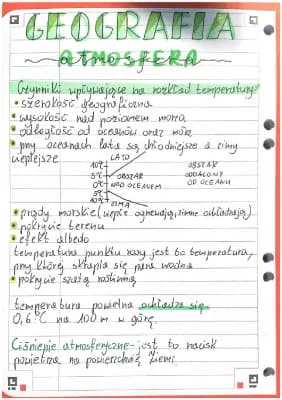 GEOGRAFIA
ATMOSFERA
atmosfera
Czynniki wpływające na rozkład temperatury:
szerokość geograficzna
wysokość nad poziomem morza
odległość od oceanów oraz mórz
przy oceanach lata są chłodniejsze a zimy
cieplejsze
LATO
10°C
5°C
0°C
5°C
10°C
ZIMA
OBSZAR
NAD OCEANEM
OBSZAR
ODDALONY
OD OCEANU
prądy morskie (ciepłe ogrzewają, zimne ochładzają)
pokrycie terenu
efekt albedo
temperatura punktu rosy jest to temperatura,
przy której skrapla się para wodna
pokrycie szatą roślinną
temperatura powietrza ochładza się
0,6°C na 100m w górę.
Ciśnienie atmosferyczne - jest to nacisk
powietrza na powierzchnię Ziemi.